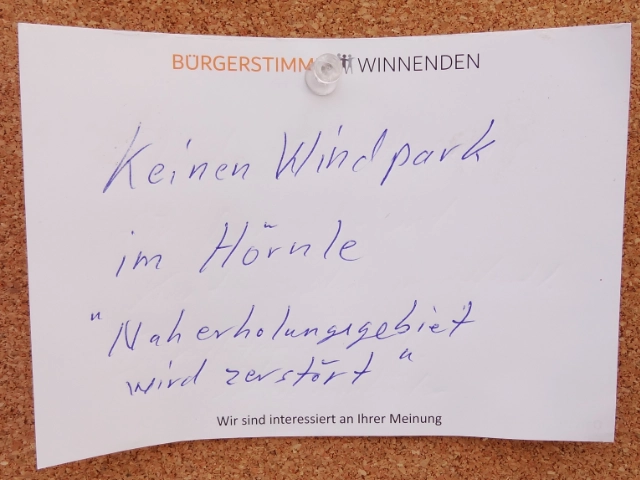 BÜRGERSTIMM WINNENDEN
Keinen Windpark
im Hörnle
"Naherholungsgebiet
wird zerstört"
Wir sind interessiert an Ihrer Meinung